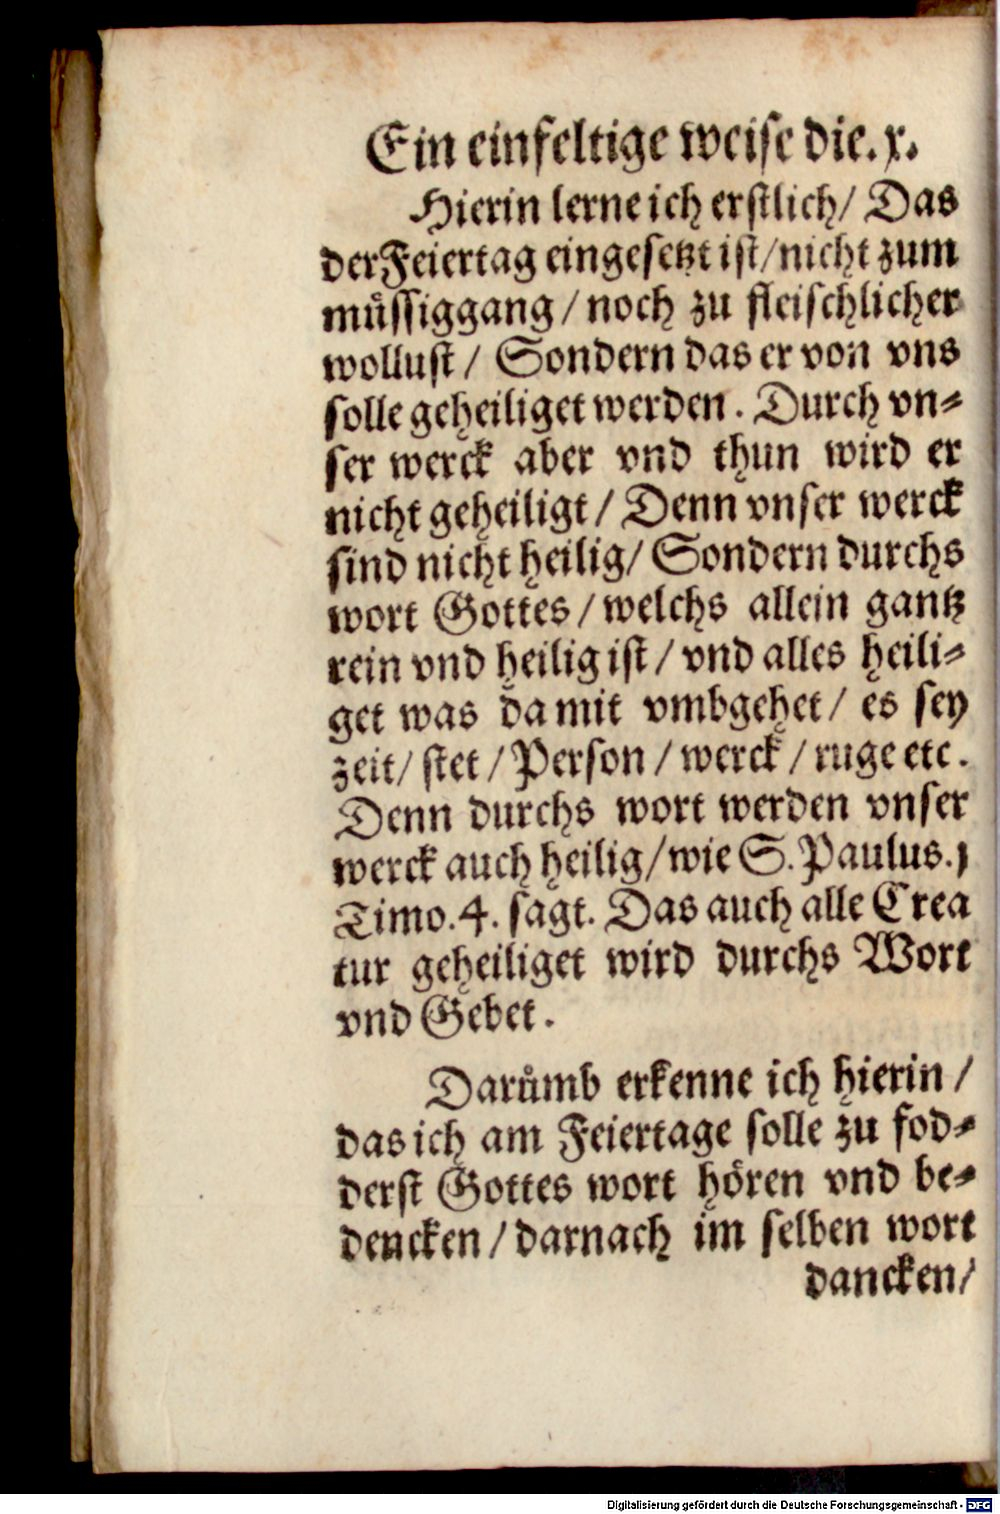 Ein einfeltige weise die.x.
Hierin lerne ich erstlich/ Das
der Feiertag eingesetzt ist/nicht zum
muͤssiggang/noch zu fleischlicher
wollust/ Sondern das er von vns
solle geheiliget werden. Durch vn⸗
ser werck aber vnd thun wird er
nicht geheiligt/ Denn vnser werck
sind nicht heilig/ Sondern durchs
wort Gottes/welchs allein gantz
rein vnd heilig ist/vnd alles heili⸗
get was damit vmbgehet/ es sey
zeit/stet/Person/werck/ruge etc.
Denn durchs wort werden vnser
werck auch heilig/wie S.Paulus.1
Timo.4. sagt. Das auch alle Crea
tur geheiliget wird durchs Wort
vnd Gebet.
Daruͤmb erkenne ich hierin/
das ich am Feiertage solle zu fod⸗
derst Gottes wort hoͤren vnd be⸗
dencken/darnach im selben wort
dancken/
Digitalisierung gefördert durch die Deutsche Forschungsgemeinschaft - DFG